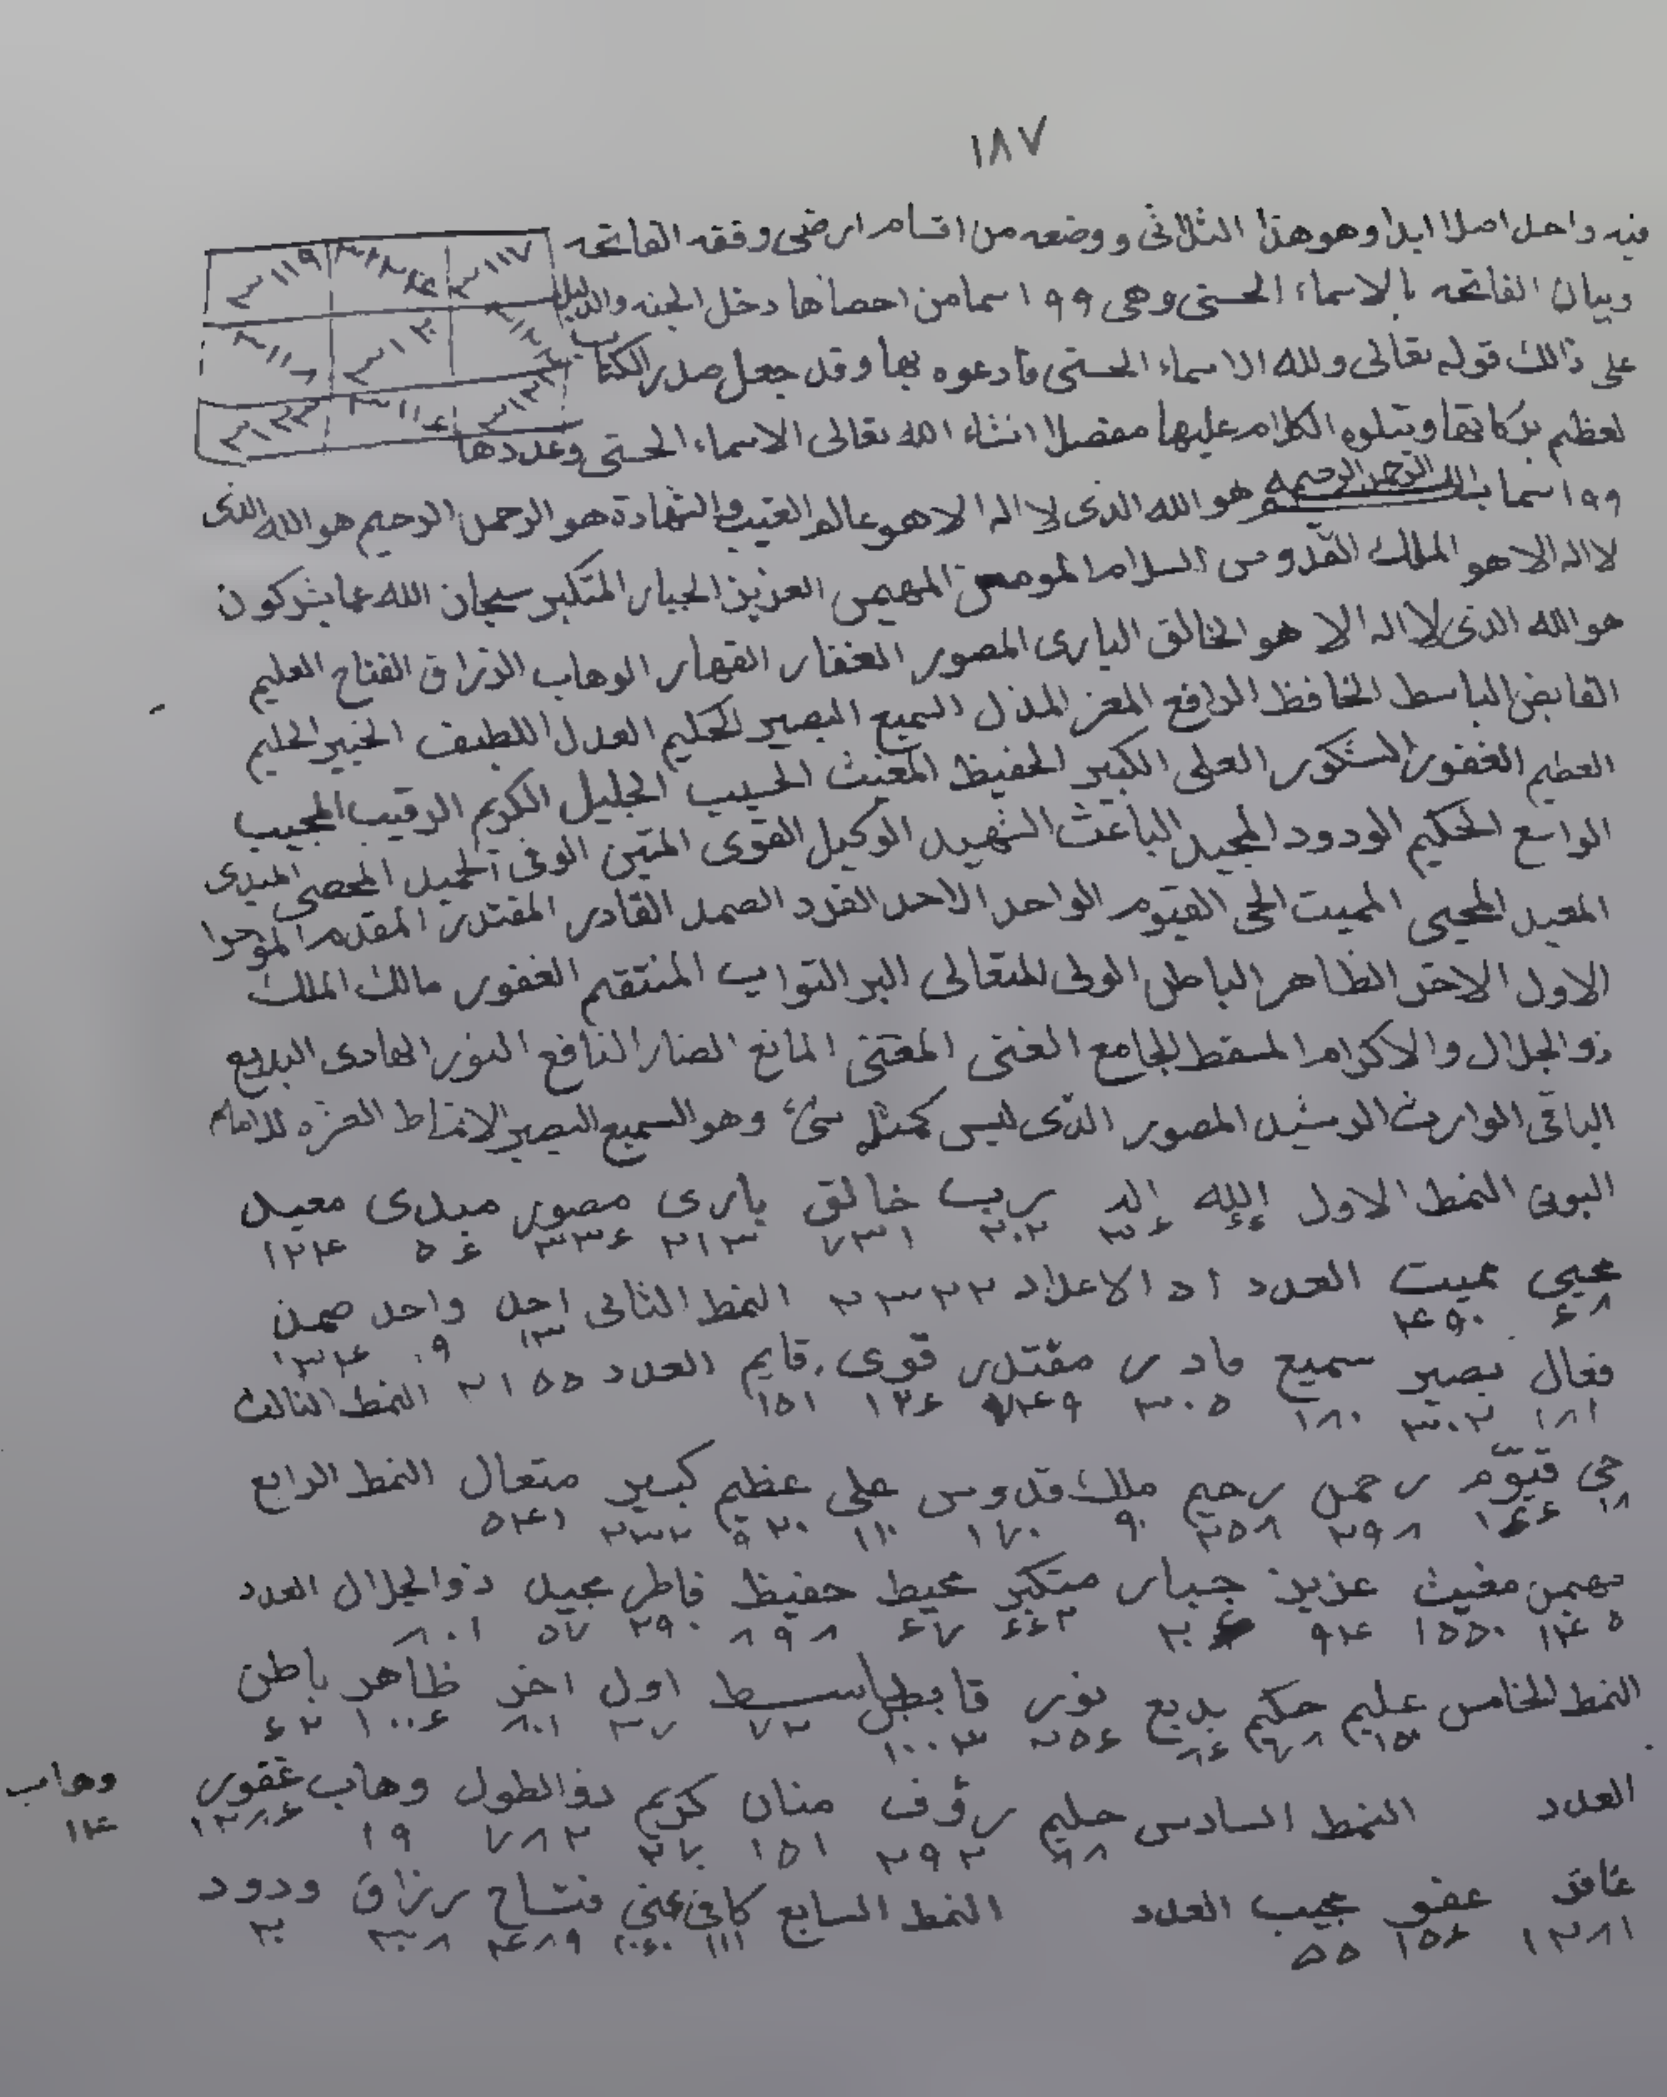 ١٨٧
فيه واحل اصلا ابدا وهو هذا الثلاثى ووضعه من اقسام ارضى وفقه الفاتحه
٣١١٧ ٣١١٩
وبيان الفاتحه بالاسماء الحسنى وهى ٩٩ اسما من احصاها دخل الجنه والدليل
على ذالك قوله تعالى ولله الاسماء الحسنى فادعوه بها وقد جعل صدر الكتاب
لعظيم بركاتها ويتلوه الكلام عليها مفصلا انشاء الله تعالى الاسماء الحسنى وعددها
٩٩ اسما بسم الله الرحمن الرحيم هو الله الذى لا اله الا هو عالم الغيب والشهادة هو الرحمن الرحيم هو الله الذى
لا اله الا هو الملك القدوس السلام المومن المهيمن العزيز الجبار المتكبر سبحان الله عما يشركون
هو الله الذى لا اله الا هو الخالق البارى المصور الغفار القهار الوهاب الرزاق الفتاح العليم
القابض الباسط الخافظ الرافع المعز المذل السميع البصير الحكيم العدل اللطيف الخبير الحليم
العظيم الغفور الشكور العلى الكبير الحفيظ المغيث الحسيب الجليل الكريم الرقيب المجيب
الواسع الحكيم الودود المجيد الباعث الشهيد الوكيل القوى المتين الوفى الحميد المحصى المبدى
المعيد المحيى المميت الحى القيوم الواحد الاحد الفرد الصمد القادر المقتدر المقدم الموخر
الاول الاخر الظاهر الباطن الولى المتعالى البر التواب المنتقم الغفور مالك الملك
ذو الجلال والاكرام المسقط الجامع الغنى المغنى المانع الضار النافع النور الهادى البديع
الباقى الوارث الرشيد المصور الذى ليس كمثله شئ وهو السميع البصير الانماط العشره للامام
البونى النمط الاول الله اله رب خالق بارى مصور مبدى معيد
٦٦ ٣٦ ٢٠٢ ٧٣١ ٢١٣ ٣٣٦ ٥٦ ١٢٤
محيى مميت العدد اه الاعداد ٢٣٢٢ النمط الثانى احد واحد صمد
٦٨ ٤٩٠ ١٣ ١٩ ١٣٤
فعال بصير سميع قادر مقتدر قوى قايم العدد ٢١٥٥ النمط الثالث
١٨١ ٣٠٢ ١٨٠ ٣٠٥ ٧٤٩ ١٢٦ ١٥١
حى قيوم رحمن رحيم ملك قدوس على عظيم كبير متعال النمط الرابع
١٨ ١٥٦ ٢٩٨ ٢٥٨ ٩٠ ١٧٠ ١١٠ ٩٢٠ ٢٣٢ ٥٤١
مهيمن مغيث عزيز جبار متكبر محيط حفيظ فاطر مجيد ذوالجلال العدد
١٤٥ ١٥٥٠ ٩٤ ٢٠٦ ٦٦٢ ٦٧ ٨٩٨ ٢٩٠ ٥٧ ٨٠١
النمط الخامس عليم حكيم بديع نور قابض باسط اول اخر ظاهر باطن
١٥٠ ٧٨ ٨٦ ٢٥٦ ١٠٠٣ ٧٢ ٣٧ ٨٠١ ١٠٠٦ ٦٢
العدد النمط السادس حليم رؤف منان كريم ذوالطول وهاب غفور وهاب
٨٨ ٢٩٢ ١٥١ ٢٧٠ ٧٨٢ ١٩ ١٢٨٦ ١٤
غافر عفو مجيب العدد النمط السابع كافى غني فتاح رزاق ودود
١٢٨١ ١٥٦ ٥٥ ١١١ ١٠٦٠ ٤٨٩ ٣٠٨ ٢٠